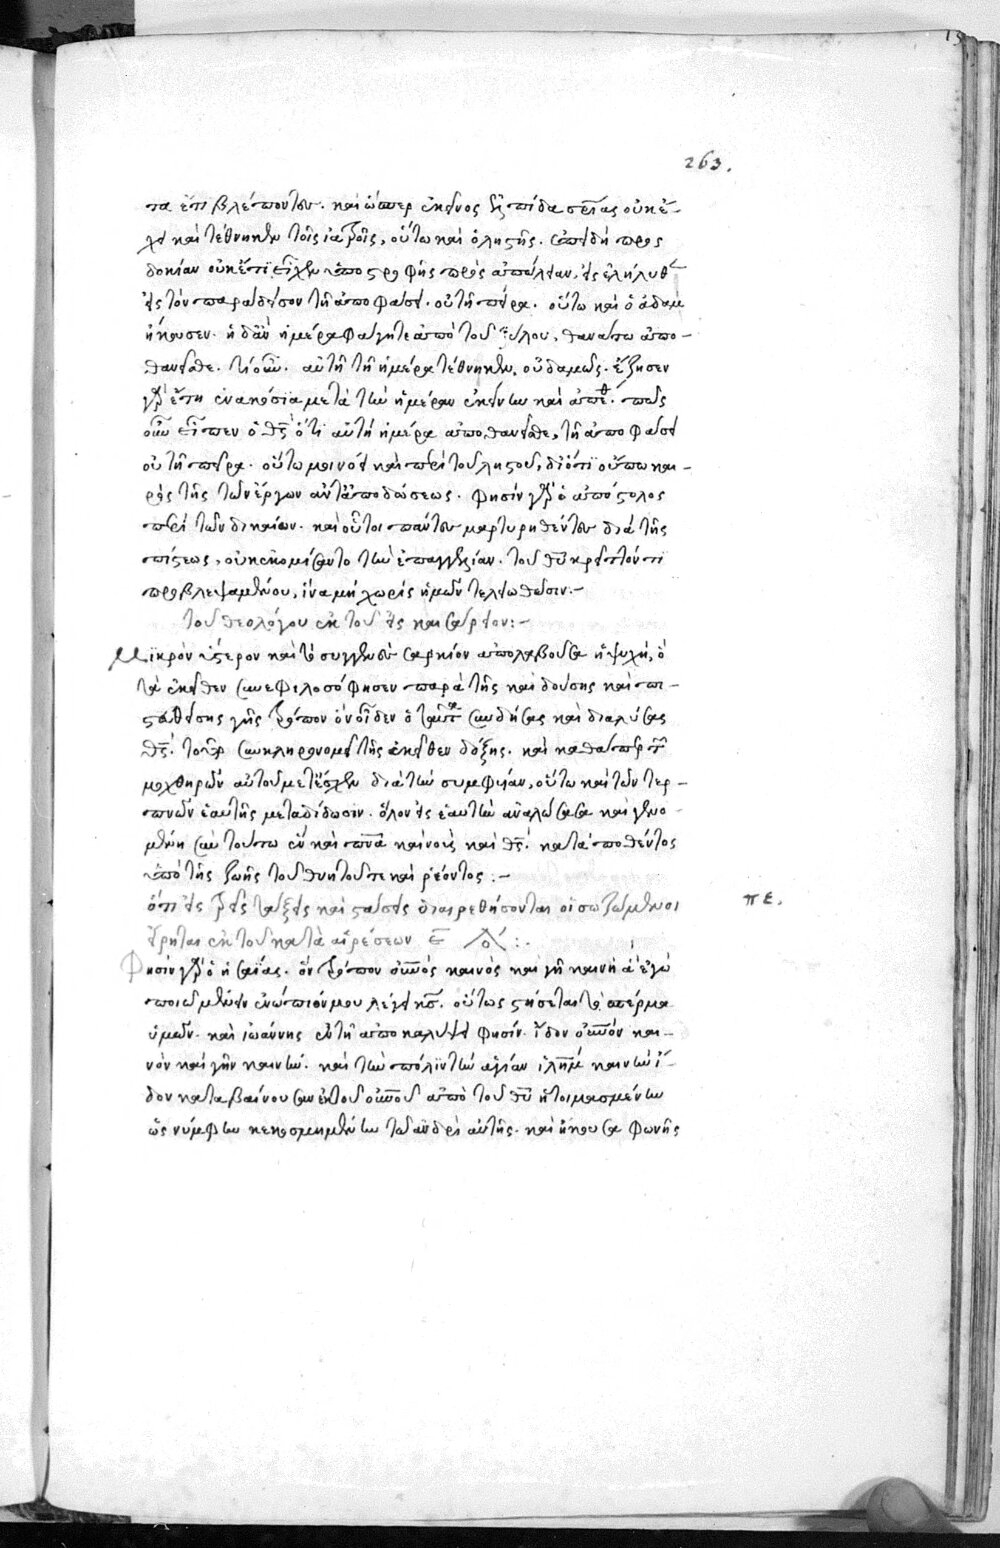 263.
τα ἔτι βλέποντων. καὶ ὥσπερ ἐκεῖνος ἐλπίδα σρίας οὐκ ἔ-
χει καὶ τέθνηκεν τοῖς ἰατροῖς, οὕτω καὶ ὁ ληστής. ἐπειδὴ προς
δοκίαν οὐκ ἔτι εἶχεν ὑποστροφῆς πρὸς ἀπώλειαν, εἰσελήλυθεν
εἰς τὸν παράδεισον τῇ ἀποφάσει. οὐ τῇ πείρα. οὕτω καὶ ὁ ἀδαμ
ἤκουσεν. ἡ δ' ἂν ἡμέρα φάγητε ἀπὸ τοῦ ξύλου, θανάτω ἀπο-
θανεῖσθε. τί οὖν. αὐτῆ τῆ ἡμέρα τέθνηκεν, οὐδαμῶς. ἔζησεν
γὰρ ἔτη ἐνακόσια μετὰ τὴν ἡμέραν ἐκείνην καὶ ἀπέθ. πῶς
οὖν εἶπεν ὁ θς ὅτι αὐτῆ ἡμέρα ἀποθανεῖσθε, τῇ ἀποφάσει
οὐ τῇ πείρα. οὕτω μοι νόει καὶ περὶ τοῦ ληστοῦ, διότι οὔπω και-
ρὸς τῆς τῶν ἔργων ἀνταποδώσεως. φησὶν γὰρ ὁ ἀπόστολος
περὶ τῶν δικαίων. καὶ οὗτοι πάντων μαρτυρηθέντων διὰ τῆς
πίστεως, οὐκ ἐκομίσαντο τὴν ἐπαγγελίαν. τοῦ θυ κρεῖττόν τι
προβλεψαμένου, ἵνα μὴ χωρὶς ἡμῶν τελειωθῶσιν:-
τοῦ θεολόγου ἐκ τοῦ εἰς καισάρειον:-
Μικρὸν ὕστερον καὶ τὸ συγγενὲς σαρκίον ἀπολαβοῦσα ἡ ψυχή, ὃ
τὰ ἐκεῖθεν συνεφιλοσόφησεν παρὰ τῆς καὶ δούσης καὶ πι-
στευθείσης γῆς τρόπον ὃν οἶδεν ὁ ταῦτα συνδήσας καὶ διαλύσας
θς. τούτω συγκληρονομεῖ τῆς ἐκεῖθεν δόξης. καὶ καθάπερ τῶν
μοχθηρῶν αὐτοῦ μετέσχεν διὰ τὴν συμφυίαν, οὕτω καὶ τῶν τερ-
πνῶν ἑαυτῆς μεταδίδωσιν. ὅλον εἰς ἑαυτὴν ἀναλώσασα καὶ γενο-
μένη σὺν τούτω ἓν καὶ πνα καὶ νοῦς καὶ θς. καταποθέντος
ὑπὸ τῆς ζωῆς τοῦ θνητοῦ τε καὶ ῥέοντος:-
ὅτι εἰς τρεῖς τάξεις καὶ στάσεις διαιρεθήσονται οἱ σωζόμενοι πε.
εἴρηται ἐκ τοῦ κατὰ αἱρέσεων
Φησὶν γὰρ ὁ ἡσαΐας. ὃν τρόπον οὐνὸς καινὸς καὶ γῆ καινὴ ἃ ἐγὼ
ποιῶ μένειν ἐνώπιόν μου λέγει κς. οὕτως στήσεται τὸ σπέρμα
ὑμῶν. καὶ ἰωάννης ἐν τῇ ἀποκαλύψει φησίν. ἴδον οὐνὸν και-
νὸν καὶ γῆν καινήν. καὶ τὴν πόλιν τὴν ἁγίαν ἱλημ καινὴν ἴ-
δον καταβαίνουσαν ἐκ τοῦ οὐνοῦ ἀπὸ τοῦ θυ ἡτοιμασμένην
ὡς νύμφην κεκοσμημένην τῶ ἀνδρὶ αὐτῆς. καὶ ἤκουσα φωνῆς